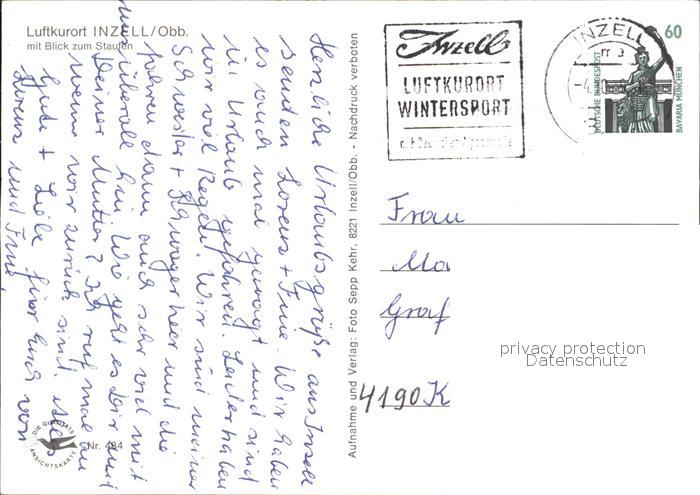 Luftkurort INZELL/Obb.
mit Blick zum Staufen
Herzliche Urlaubsgrüße aus Inzell
senden Lorenz + Trine. Wir haben
es auch mal gewagt und sind
in Urlaub gefahren. Leider haben
wir viel Regen. Wir sind meiner
Schwester + Schwager hier und die
fahren dann auch sehr viel mit
uns überall hin. Wie geht es Dir und
Deiner Mutter? Ich ruf mal an
wenn wir zurück sind. Alles
Gute + Liebe für Euch von
Lorenz und Trine
DIE QUALITÄTS
ANSICHTSKARTE
Nr. 484
Aufnahme und Verlag: Foto Sepp Kehr, 8221 Inzell/Obb. - Nachdruck verboten
Inzell
LUFTKURORT
WINTERSPORT
INZELL
60
DEUTSCHE BUNDESPOST
BAVARIA MÜNCHEN
Frau
Ma
Graf
4190 K
privacy protection
Datenschutz